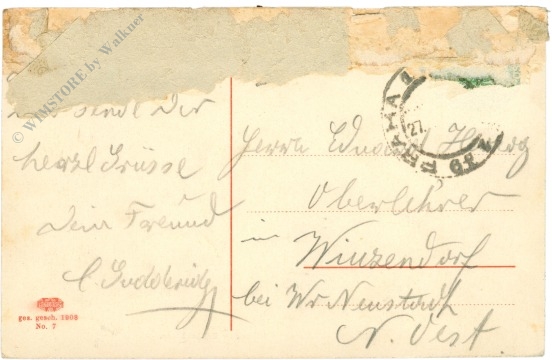 © WIMSTORE by Walkner
sendt Dir
herzl Grüsse
Dein Freund
ges. gesch. 1898
No. 7
PRAHA
27.
Herrn Eduard Herzog
Oberlehrer
in Winzendorf
bei Wr Neustadt
N. Oest